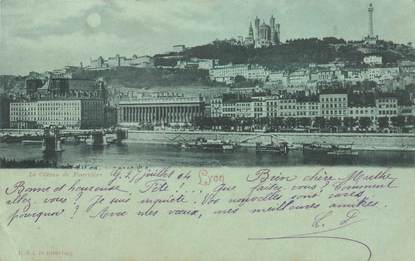 Le Coteau de Fourvière
Lyon
G. 27 juillet 04
Bonne et heureuse Fête! ... Que faites vous? Comment
allez vous? Je suis inquiète. Vos nouvelles sont rares,
pourquoi? Avec mes vœux, mes meilleures amitiés.
Bien chère Marthe